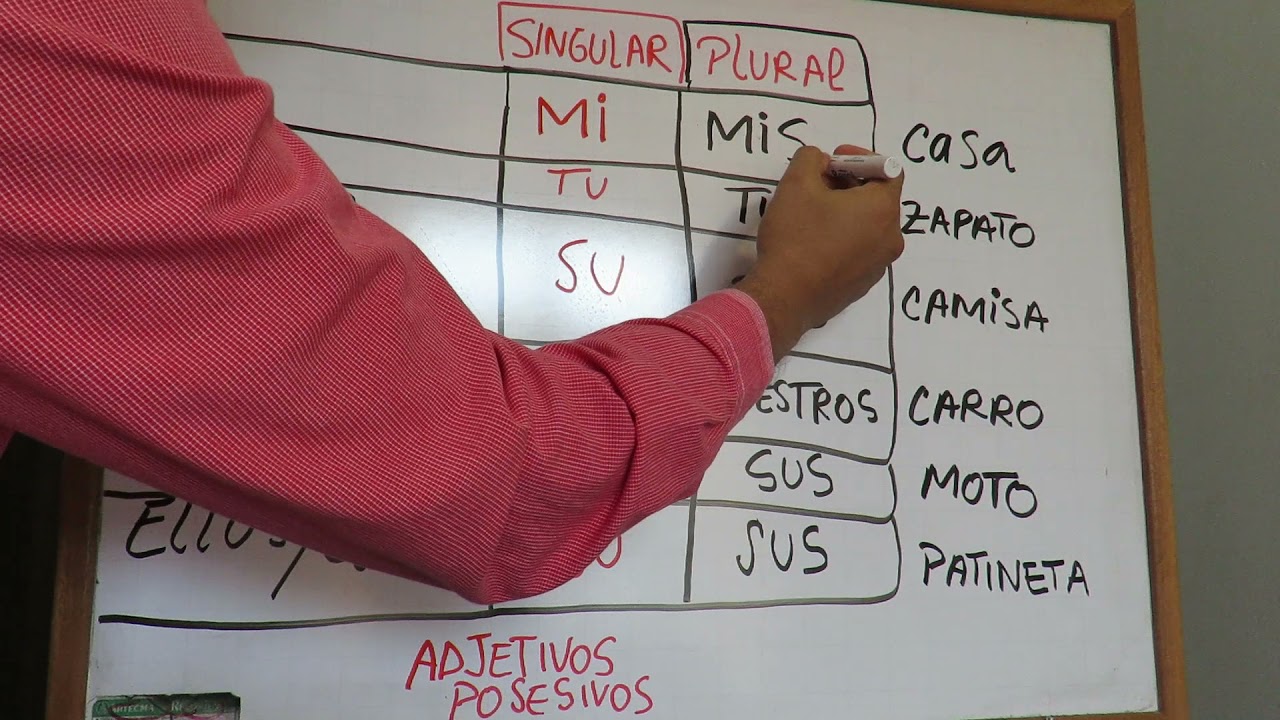 SINGULAR PLURAL
Mi Mis casa
TU ZAPATO
SU CAMiSA
ESTROS CARRO
SUS MOTO
SUS PATINETA
ADJETIVOS
POSESIVOS